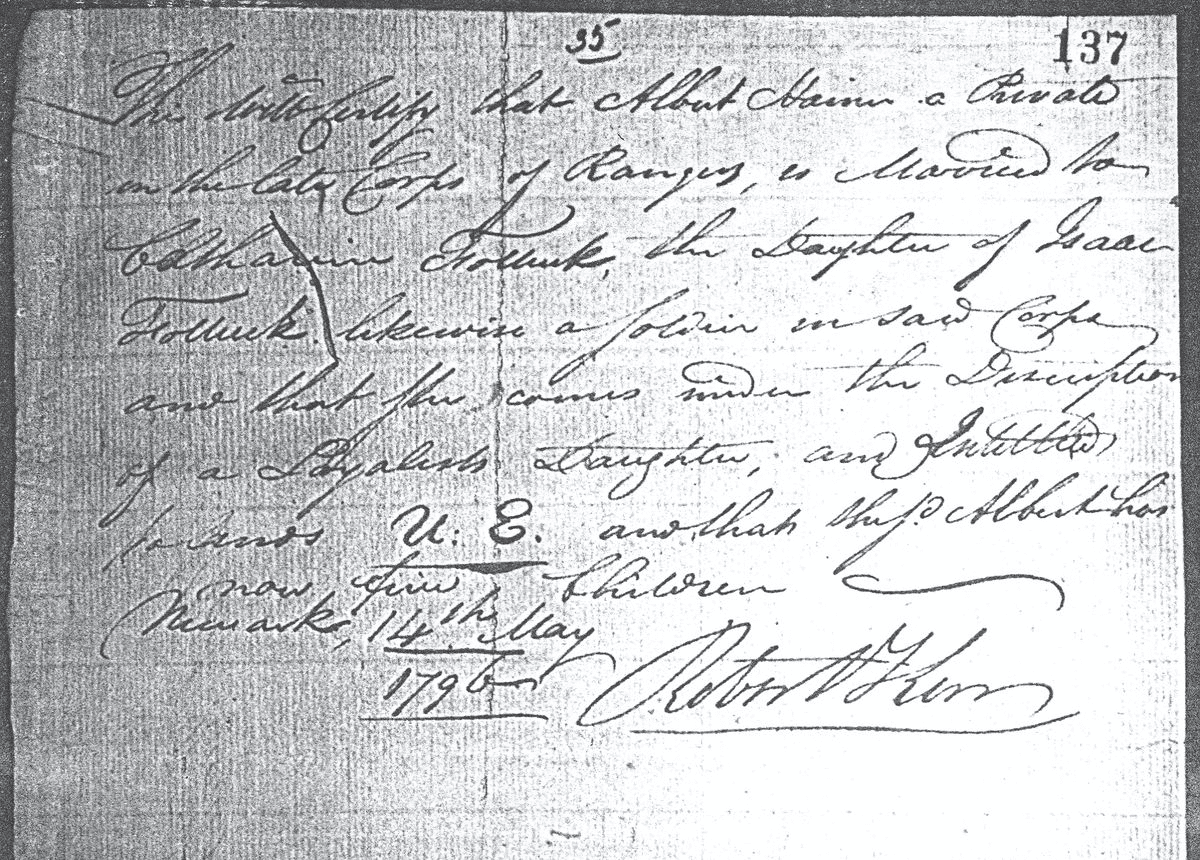 35
137
This will Certify that Albert Hainer a Private
in the late Corps of Rangers, is Married to
Catharine Follick, the Daughter of Isaac
Follick likewise a Soldier in said Corps
and that She comes under the Description
of a Loyalists Daughter, and Intittled
to Lands U: E. and that the sd. Albert has
now five Children
Newark, 14th May
1796
Robert Kerr